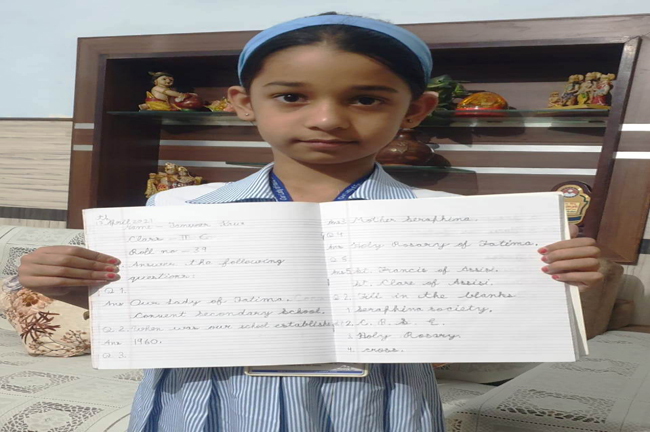 April 2021
Name -
Class - III C
Roll no - 39
Answer the following
questions:
Q 1.
Ans Our lady of Fatima,
Convent Secondary School.
Q 2. When was our schol establishe
Ans 1960.
Q 3.
Ans Mother Seraphina.
Q 4.
Ans Holy Rosary of Fatima.
Q 5
Ans St. Francis of Assisi.
St. Clare of Assisi.
Q 7. Fill in the blanks
1. Seraphina society.
2. C. B. S. E.
3. Holy Rosary
4. cross.